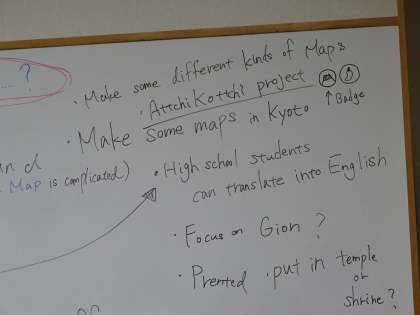 .... ?
· Make some different kinds of Maps
· AttchiKottchi project
↑ Badge
· Make some maps in Kyoto
and
Map is complicated)
· High school students
can translate into English
· Focus on Gion ?
· Prented · put in temple
or
shrine ?